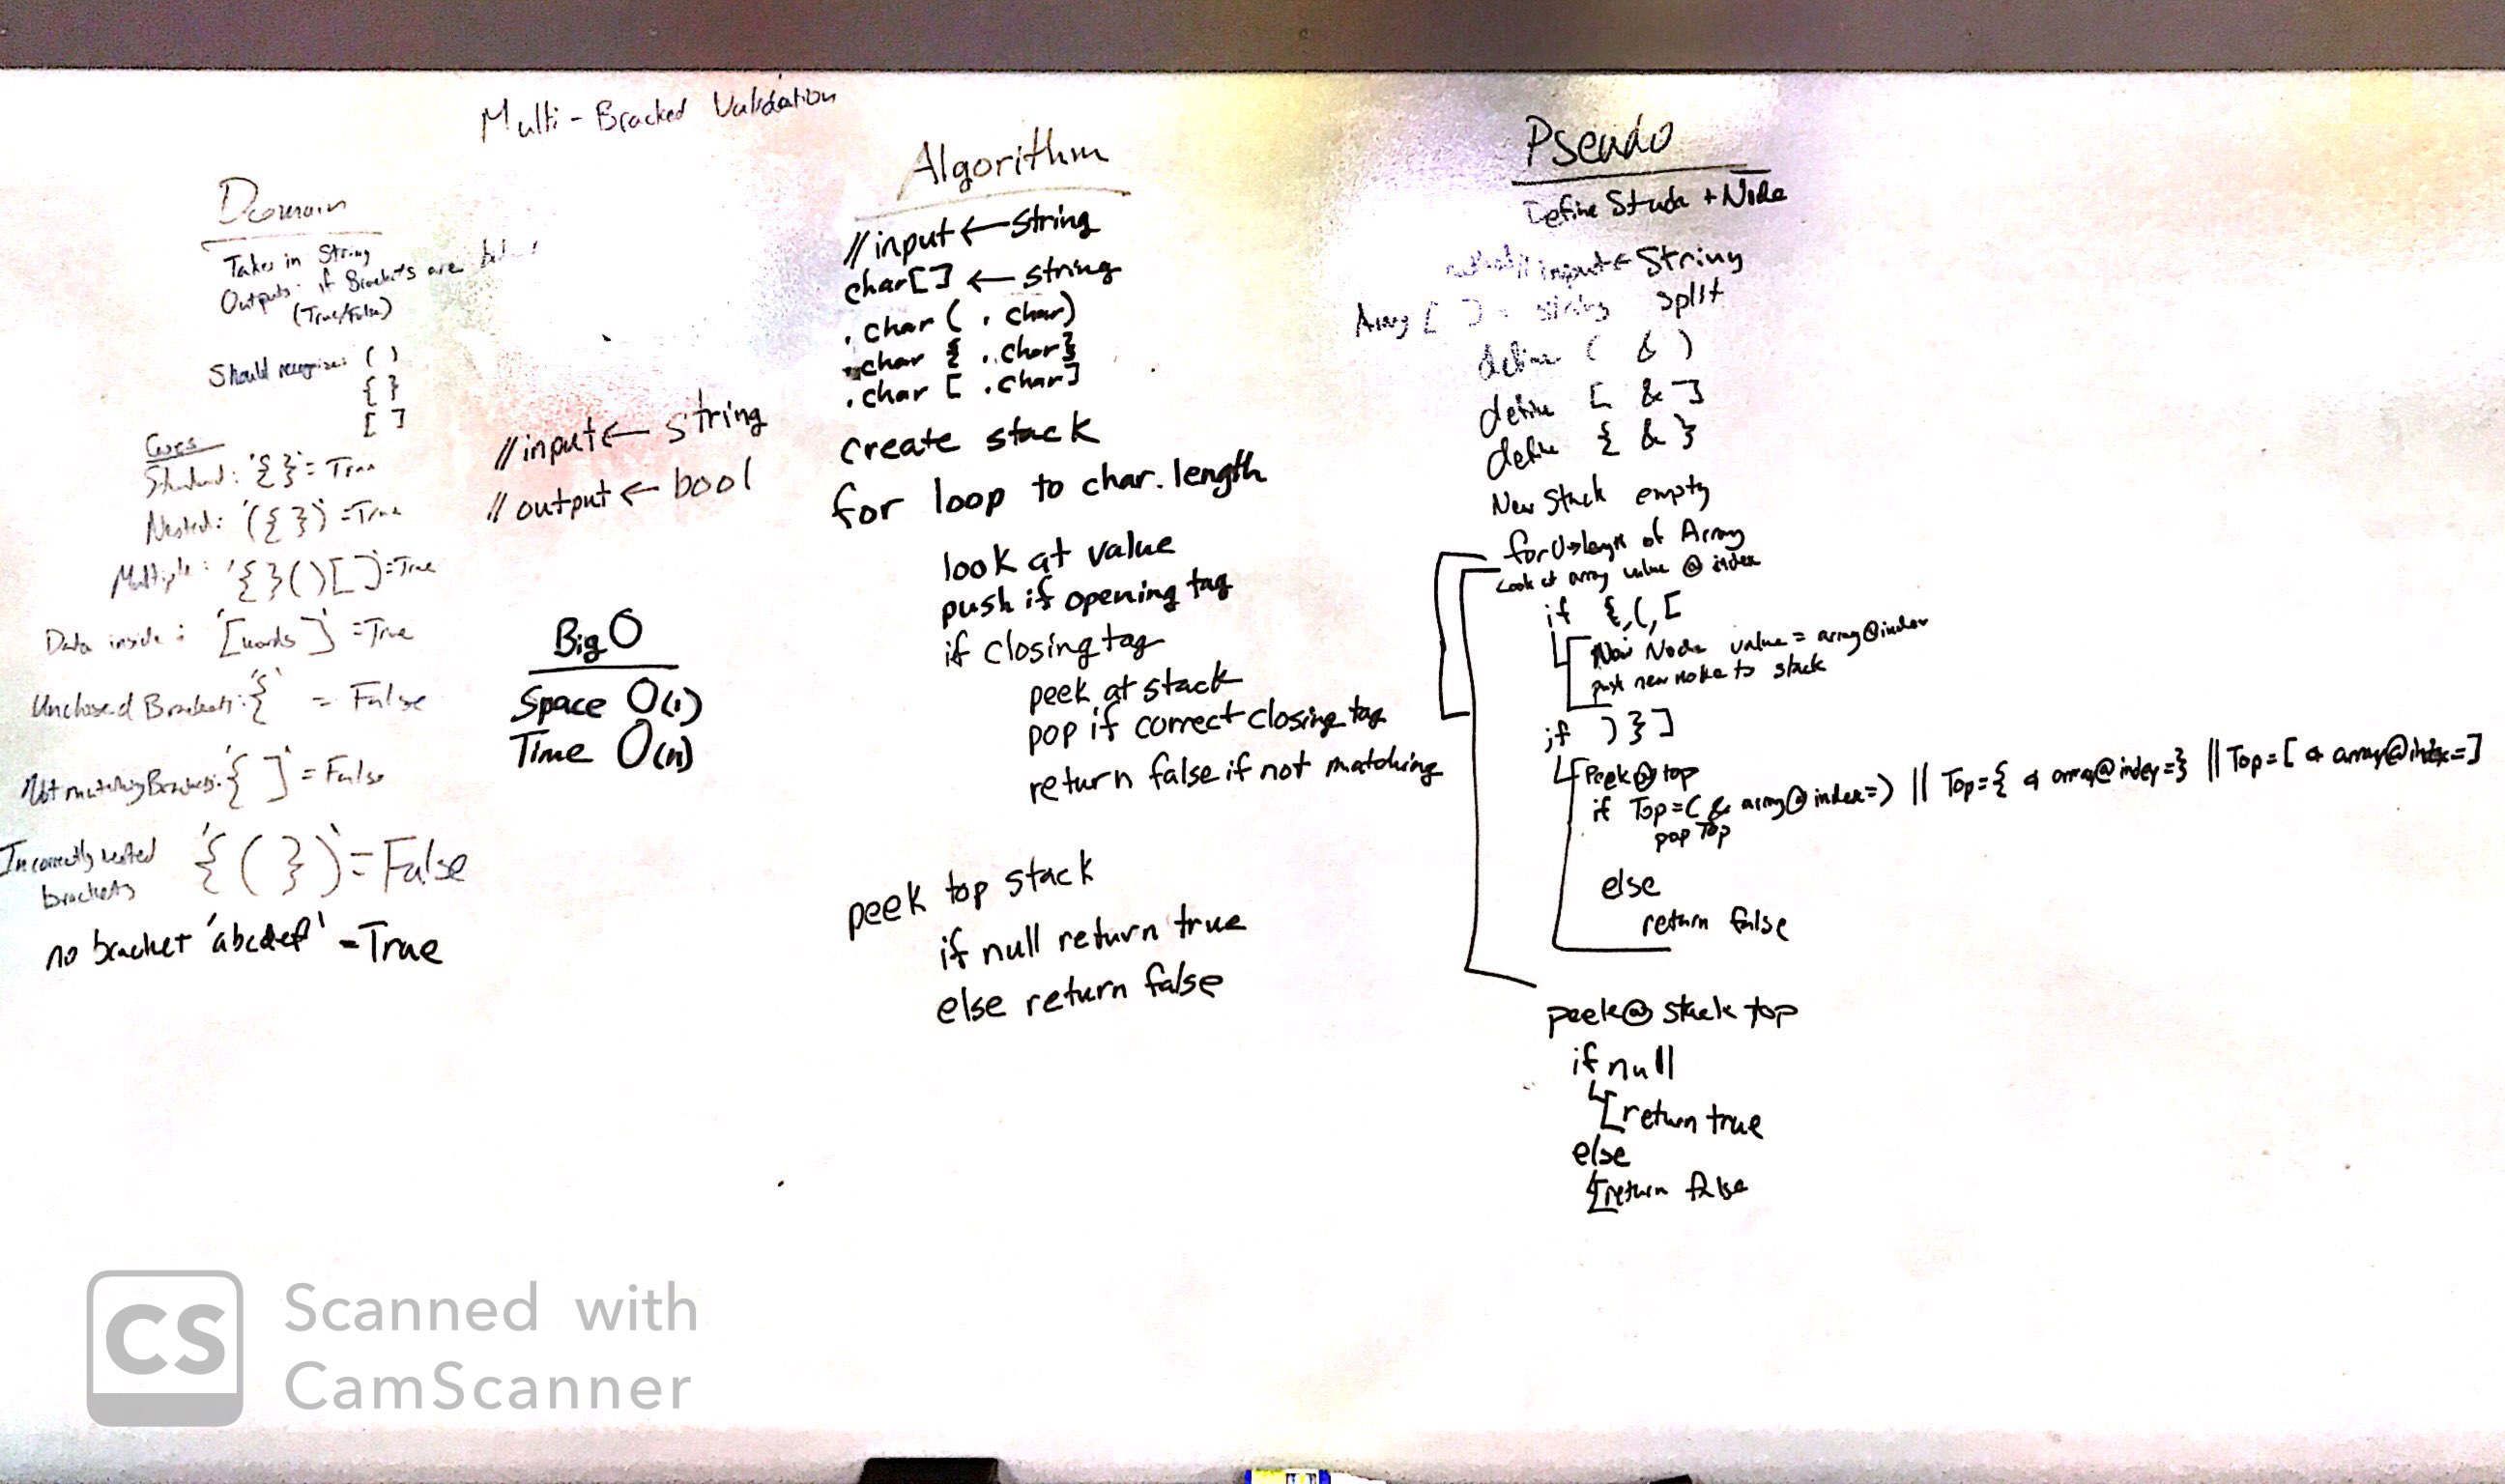 Multi-Bracked Validation
Domain
Takes in String
Outputs: if Brackets are
(True/False)
Should recognize: ( )
{ }
[ ]
Cases
Standard: '{}' = True
Nested: '({})' = True
Multiple: '{}()[]' = True
Data inside: '[words]' = True
Unclosed Brackets: '{' = False
Not matching Brackets: '{ ]' = False
Incorrectly nested
brackets '{(})' = False
no bracket 'abcdef' = True
//input ← string
// output ← bool
Big O
Space O(1)
Time O(n)
Algorithm
//input ← String
char[] ← string
. char ( . char)
. char { . char}
. char [ . char]
create stack
for loop to char.length
look at value
push if opening tag
if closing tag
peek at stack
pop if correct closing tag
return false if not matching
peek top stack
if null return true
else return false
Pseudo
Define + Node
input ← String
Array [ ] = string split
define ( & )
define [ & ]
define { & }
New Stack empty
for 0→length of Array
Look at array value @ index
if {,(,[
New Node value = array@index
push new node to stack
if ) } ]
Peek@top
if Top=( & array@index=) || Top={ & array@index=} || Top=[ & array@index=]
pop Top
else
return false
peek@ stack top
if null
return true
else
return false
Scanned with
CS
CamScanner